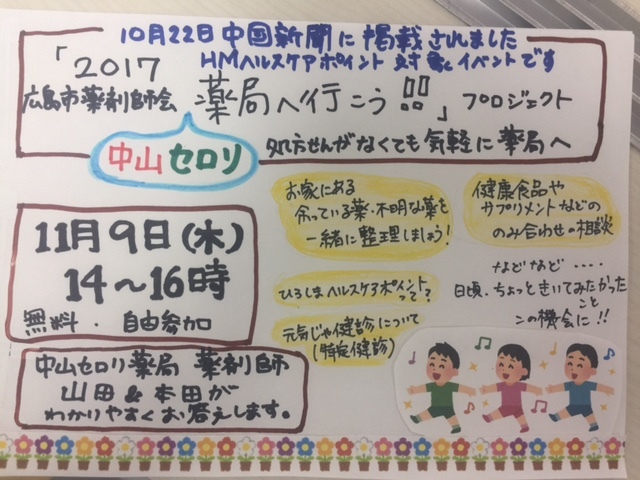 10月22日中国新聞に掲載されました
HMヘルスケアポイント対象イベントです
「2017
広島市薬剤師会 薬局へ行こう!!」プロジェクト
中山セロリ
処方せんがなくても気軽に薬局へ
11月9日(木)
14〜16時
無料・自由参加
お家にある
余っている薬・不明な薬を
一緒に整理しましょう!
健康食品や
サプリメントなどの
のみ合わせの相談
ひろしまヘルスケアポイント
って?
元気じゃ健診について
(特定健診)
などなど・・・・
日頃、ちょっときいてみたかった
こと
この機会に!!
中山セロリ薬局 薬剤師
山田&本田が
わかりやすくお答えします。